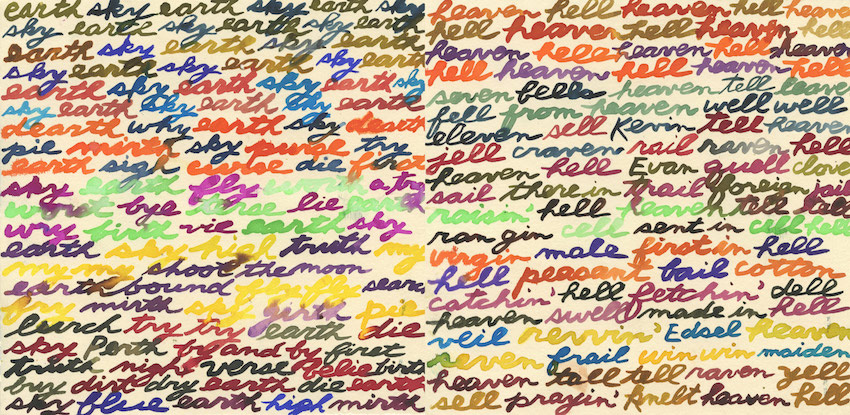 earth sky earth sky earth sky
sky earth sky earth sky earth
earth sky earth sky earth
sky earth sky earth sky earth
earth sky earth sky earth sky
sky earth sky earth sky earth
dearth why earth sky dearth
pie mirth sky purse try
earth sigh curse die first
sky earth fly worth a try
worst bye terse lie earth
wry birth vie earth sky
earth sky high truth my
my my shoot the moon
earth bound fly fly search
buy mirth sky girth pie
lurch try try earth die
sky Perth by and by first
truth night verse belie birth
buy dirt dry earth die earth
sky blue earth high mirth
heaven hell heaven hell heaven
hell heaven hell heaven hell
heaven hell heaven hell heaven
hell heaven hell heaven hell
seven fella heaven tell leaven
fell from heaven well well
eleven sell Kevin tell heaven
jell craven rail raven hell
heaven hell Evan quell clove
sail there in trail foreign jail
raisin' hell heaven tell tell
ran gin cell sent in cell hell
virgin male first in hell
hell peasant bail cotton
catchin' hell fetchin' dell
heaven swell made in hell
veil revvin' Edsel heaven
seven frail win win maiden
heaven tall tell raven yell
sell prayin' Anelt heaven hell